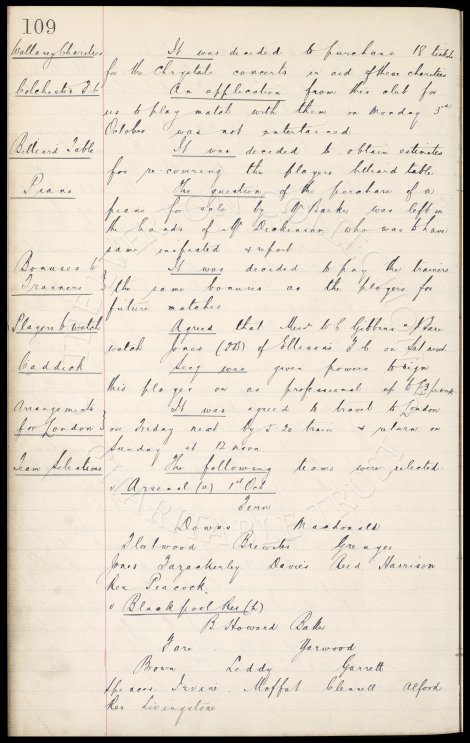 109
Wallasey Charities It was decided to purchase 18 tickets
for the Chrystals concerts in aid of these charities
Colchester F.C. An application from this club for
us to play match with them on Monday 3rd
October was not entertained.
Billiard Table It was decided to obtain estimates
for re-covering the players billiard table.
Piano The question of the purchase of a
piano for sale by Mr Barker was left in
the hands of Mr Dickinson, who was to have
same inspected & report
Bonuses to Trainers It was decided to pay the trainers
the same bonuses as the players for
future matches
Players to watch Agreed that Messrs W C Gibbins & J Fare
watch Jones (IR) of Ellesmere F.C on Sat next.
Caddick Secy was given powers to sign
this player on as professional at per week
Arrangements for London It was agreed to travel to London
on Friday next by 5-20 train & return on
Sunday at 12 noon
Team Selections The following teams were selected.
v Arsenal (a) 1st Oct
Fern
Downs Macdonald
Fleetwood Brewster Grenyer
Jones Fazackerley Davies Reid Harrison
Res Peacock.
v Blackpool Res (h)
B Howard Baker
Fare Yarwood
Brown Leddy Garrett
Spencer. Irvine. Moffat Clennell Alford
Res Livingstone